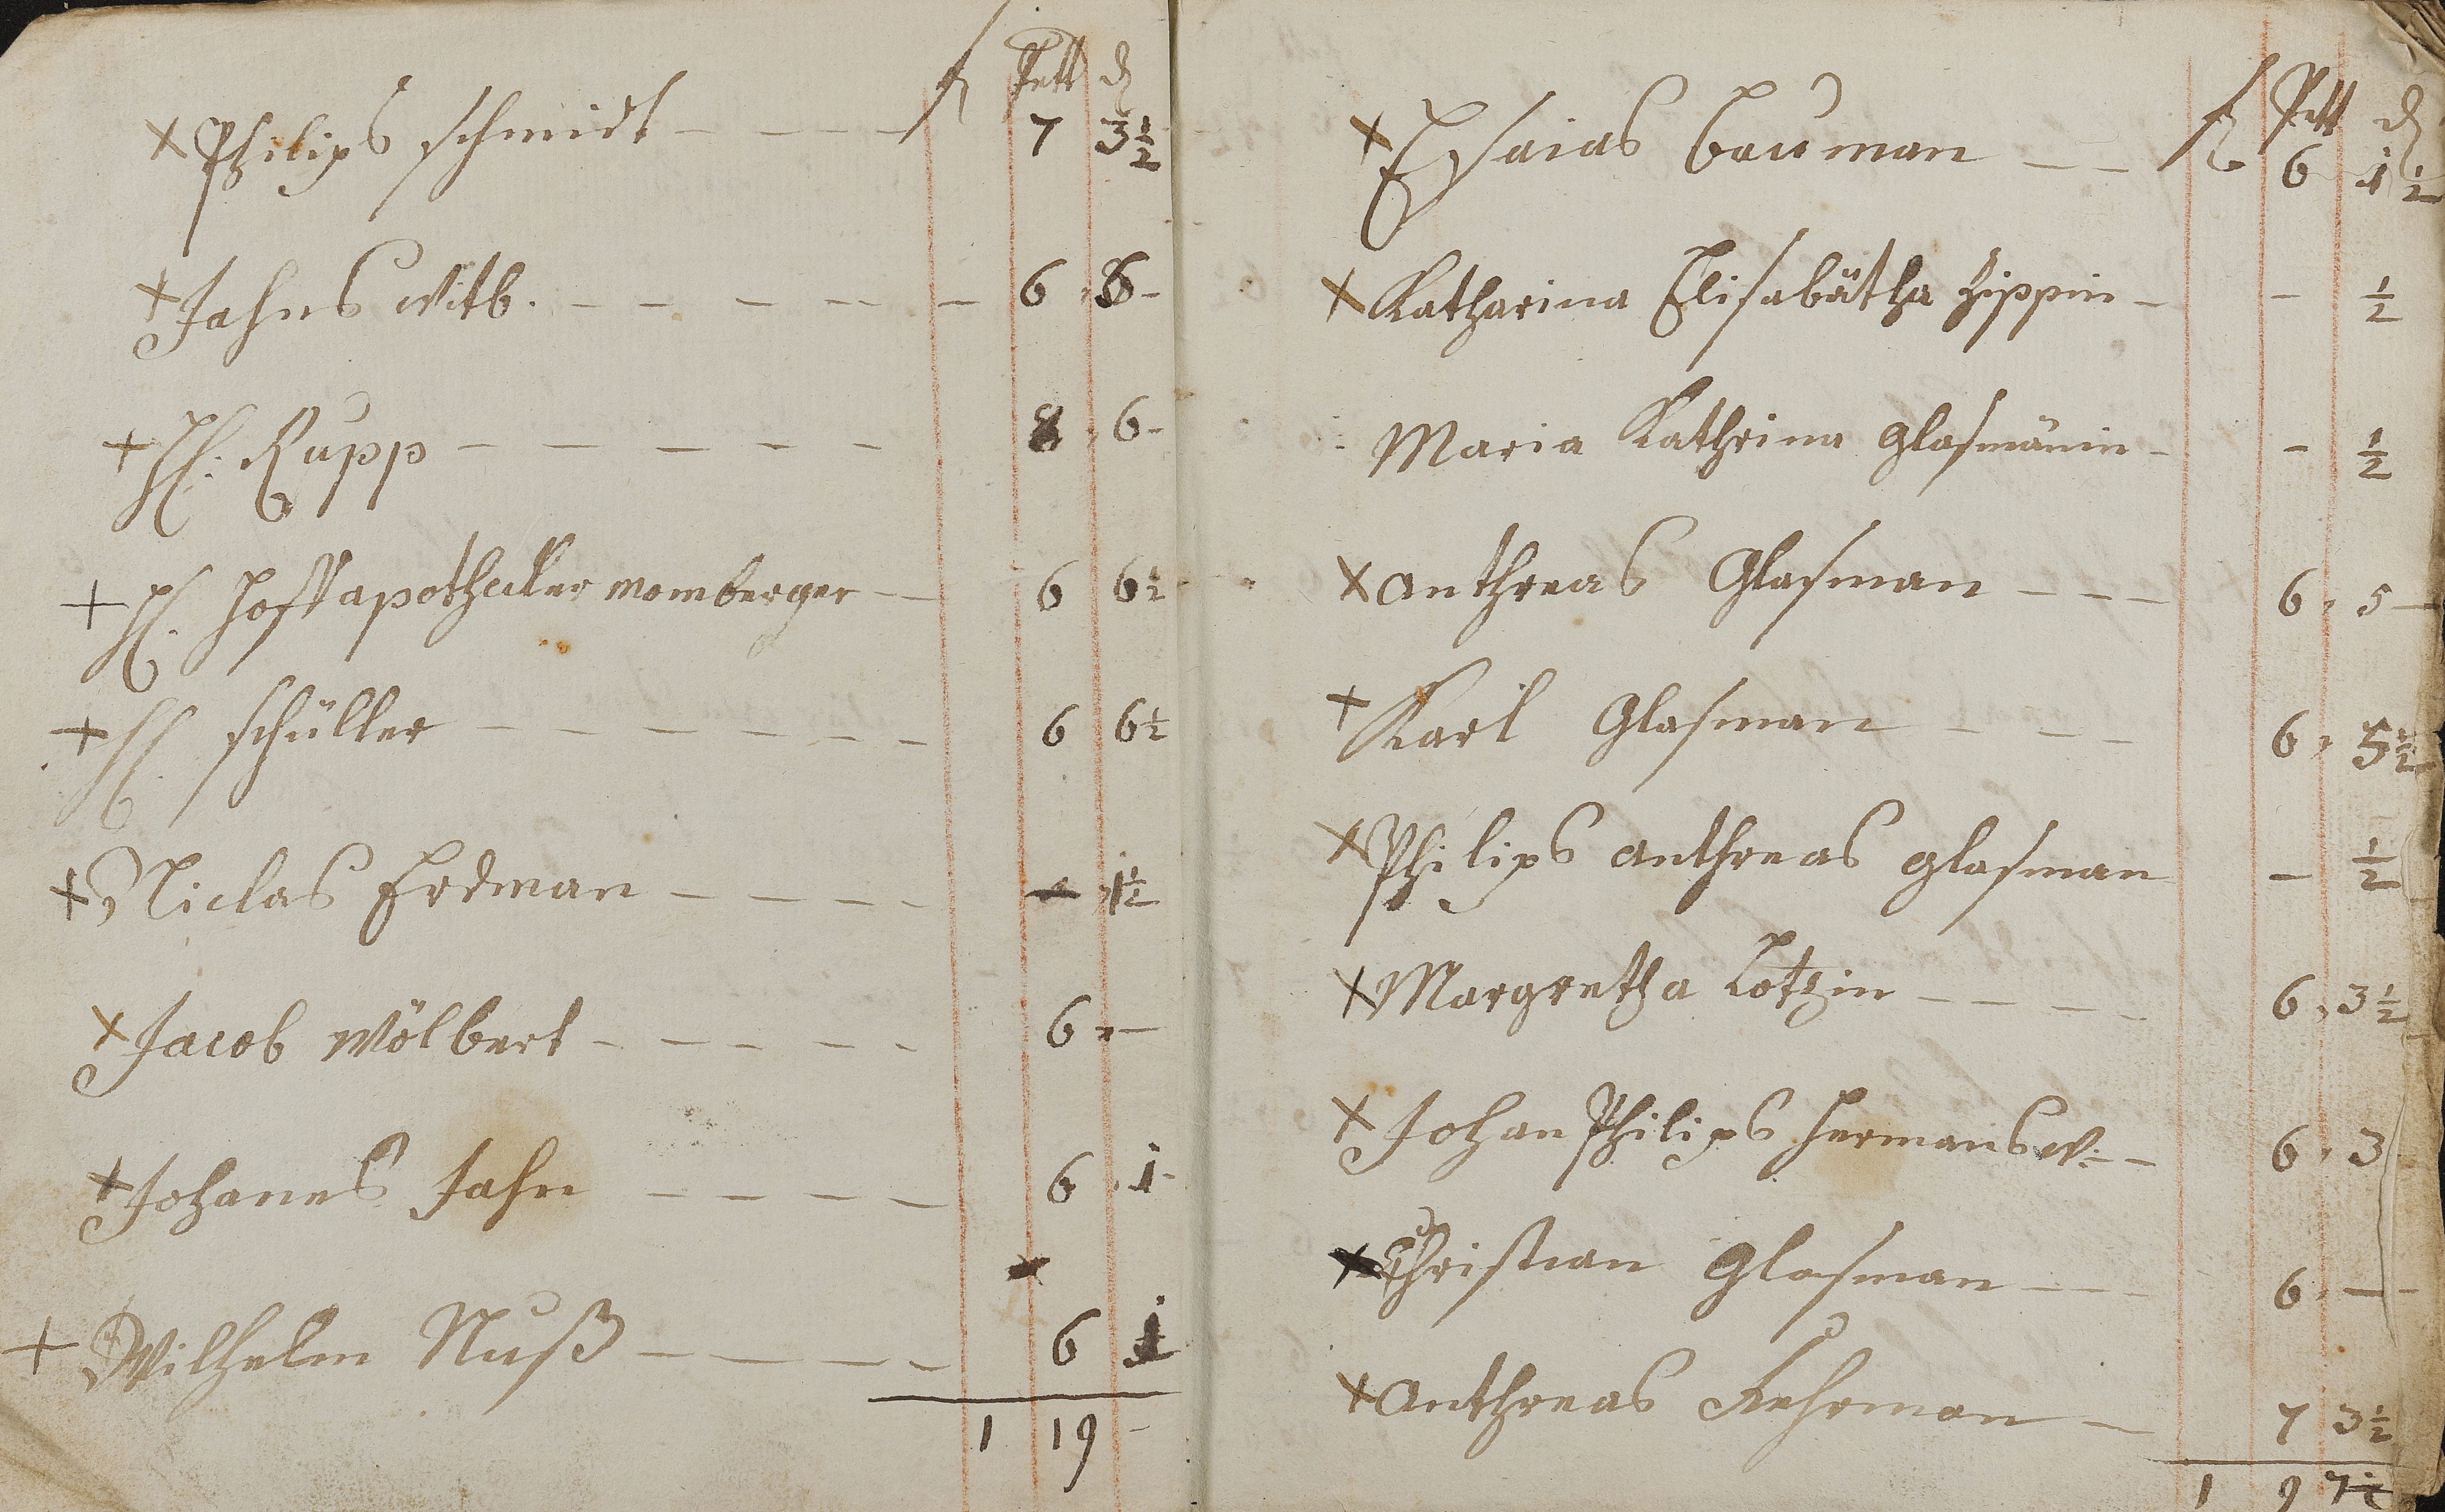 fl Pett d
× Philips schmidt - - - 7 3½
× Jahns witb. - - - - - - 6 6 -
+ H: Rupp - - - - - - 8 6 -
+ H. Hoffapothecker momberger - - 6 6½
+ H schüller - - - - - - - 6 6½
+ Niclas Erdman - - - - - 1½
× Jacob Wölbert - - - - - 6 - -
× Johanes Jahn - - - - - 6 1 -
+ Wilhelm Nuß - - - - - 6 1
1 19 -
fl Pett d
× Esaias bauman - - 6 1½
× Katharina Elisabätha Zippin - - ½
Maria Kathrina glasmänin - - ½
× anthreas Glasman - - - 6 5 -
+ Karl Glasman - - - 6 5½
× Philips anthreas glasman - ½
× Margretha Lotzin - - - - 6 3½
× Johan Philips Hermans W: - - 6 3
× Christian Glasman - - - 6 -
× anthreas Fehrman - 7 3½
1 9 7½